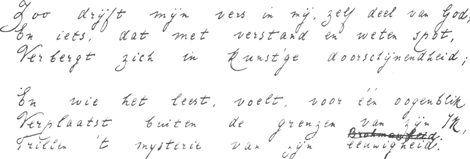 Zoo drijft mijn vers in mij, zelf deel van God,
En iets, dat met verstand en weten spot,
Verbergt zich in kunst'ge doorschijnendheid;
En wie het leest, voelt, voor één oogenblik
Verplaatst buiten de grenzen van zijn Ik,
Trillen 't mysterie van zijn eeuwigheid.